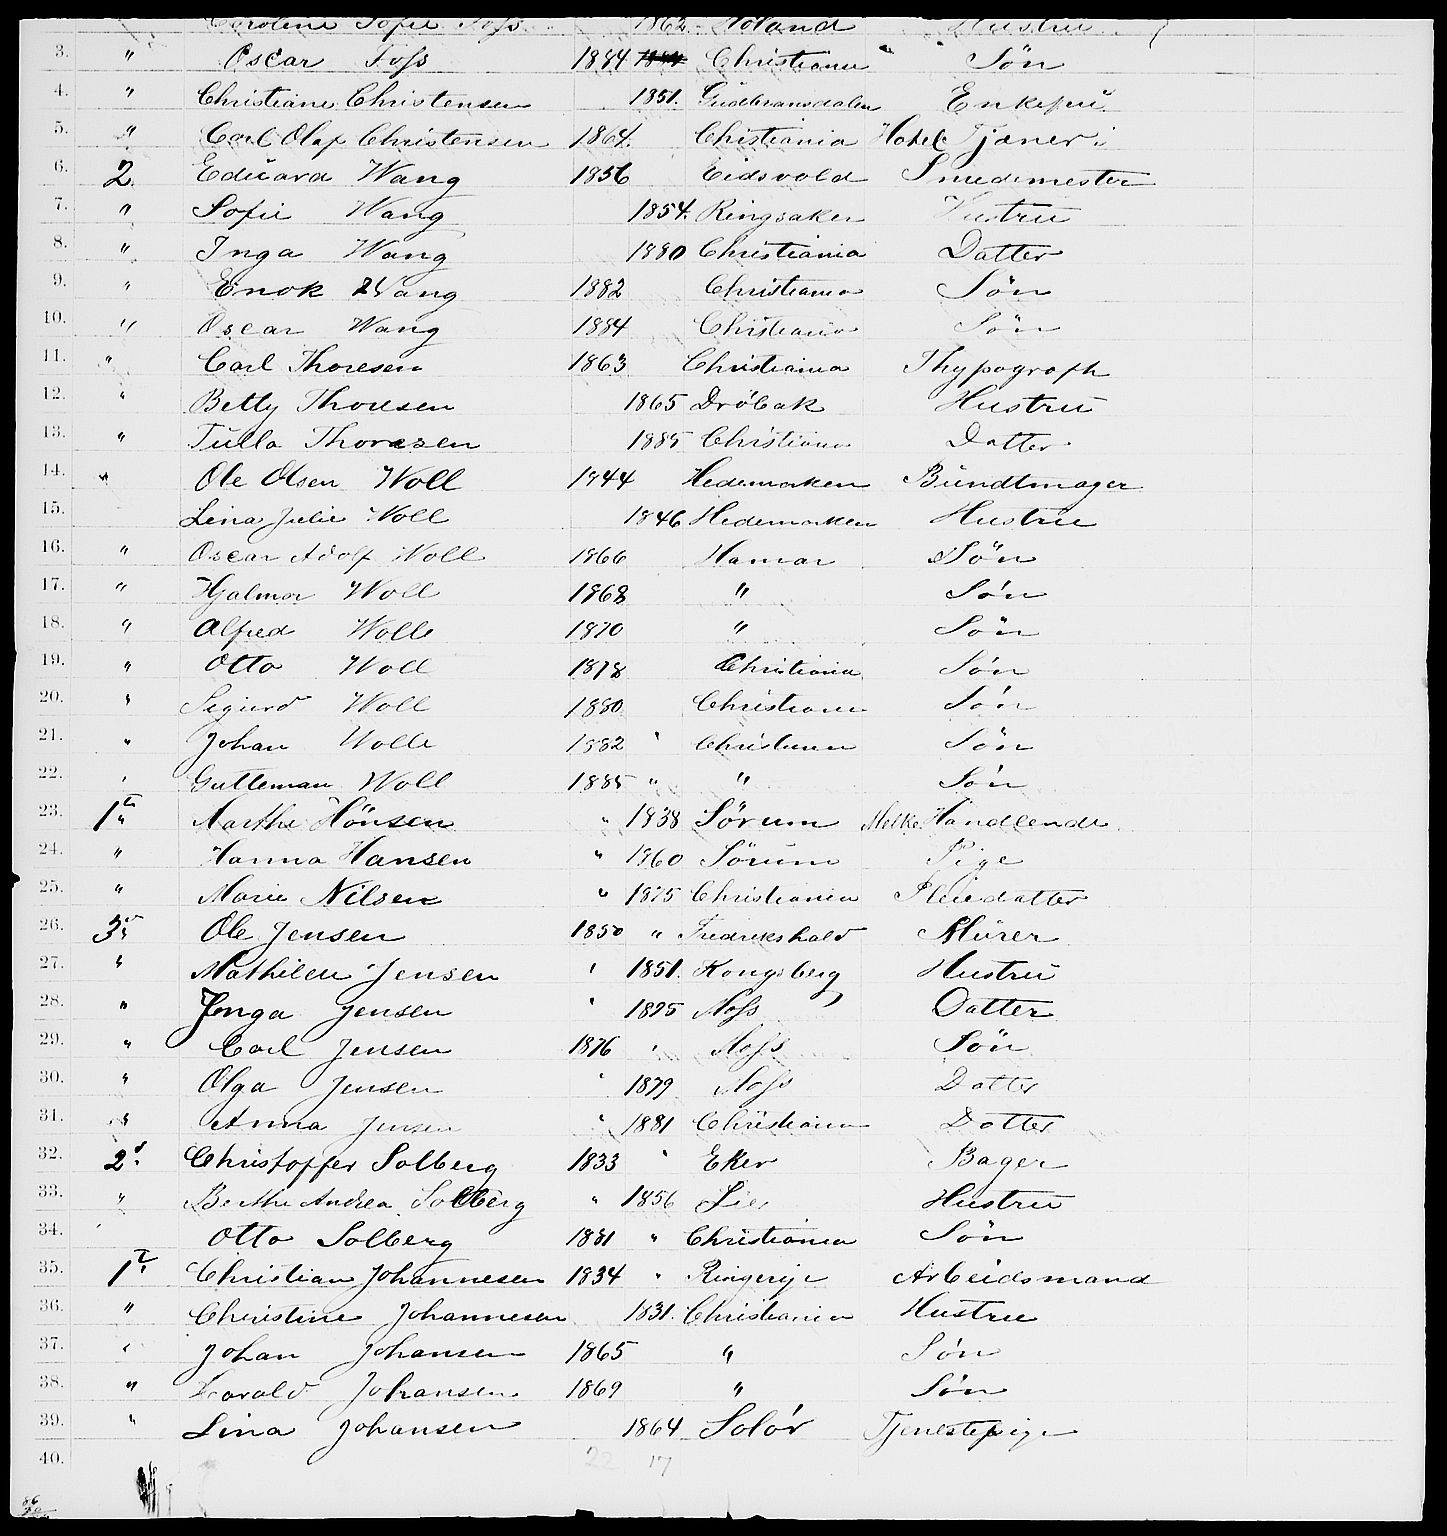 Caroline Sofie Foss 1862 Høland Hustru
3. " Oscar Foss 1884 Christiania Søn
4. " Christiane Christensen 1851. Gudbransdalen Enkefru
5. " Carl Olaf Christensen 1864. Chistiania Hotel Tjener
6. 2. Edúard Wang 1856 Eidsvold Smedemester
7. " Sofie Wang 1854. Ringsaker Hustrú
8. " Inga Wang 1880 Christiania Datter
9. " Enok Wang 1882 Christiania Sön
10. " Oscar Wang 1884 Christiania Sön
11. " Carl Thoresen 1863 Christiania Thypograph
12. " Betty Thoresen 1865 Dröbak Hustrú
13. " Túlla Thoresen 1885 Christiania Datter
14. " Ole Olsen Woll 1844 Hedemarken Búndtmager
15. Lina Julie Woll 1846 Hedemarken Hustru
16. " Oscar Adolf Woll 1866 Hamar Sön
17. " Hjalmar Woll 1868 " Sön
18. " Alfred Wolle 1870 " Sön
19. " Otto Woll 1878 Christiania Sön
20. " Sigurd Woll 1880 Christiania Sön
21. " Johan Wolle 1882 " Christiania Sön
22. " Gutteman Woll 1885 " " Sön
23. 1 " Marthe Hansen " 1838 Sörum Melke Handlende
24. " Hanna Hansen " 1860 Sörum Pige
25. " Marie Nilsen " 1875 Christiania Pleiedatter
26. 3 " Ole Jensen 1850 " Fredrikshald Múrer
27. " Mathilde Jensen " 1851. Kongsberg Hustrú
28. " Inga Jensen " 1875 Moss Datter
29. " Carl Jensen 1876 " Moss Sön
30. " Olga Jensen " 1879 Moss Datter
31. " Anna Jensen " 1881 Christiania Datter
32. 2 Christoffer Solberg 1833 " Eker Bager
33. " Berthe Andrea Solberg " 1856 Lier Hustru
34. " Otto Solberg 1881 " Christiania Sön
35. 1 Christian Johannesen 1834 " Ringerige Arbeidsmand
36. " Christine Johannesen 1831. Christiania Hustru
37. " Johan Johansen 1865 " Sön
38. " Harald Johansen 1869 " Sön
39. " Lina Johansen 1864 Solör Tjenestepige
40. 22 17